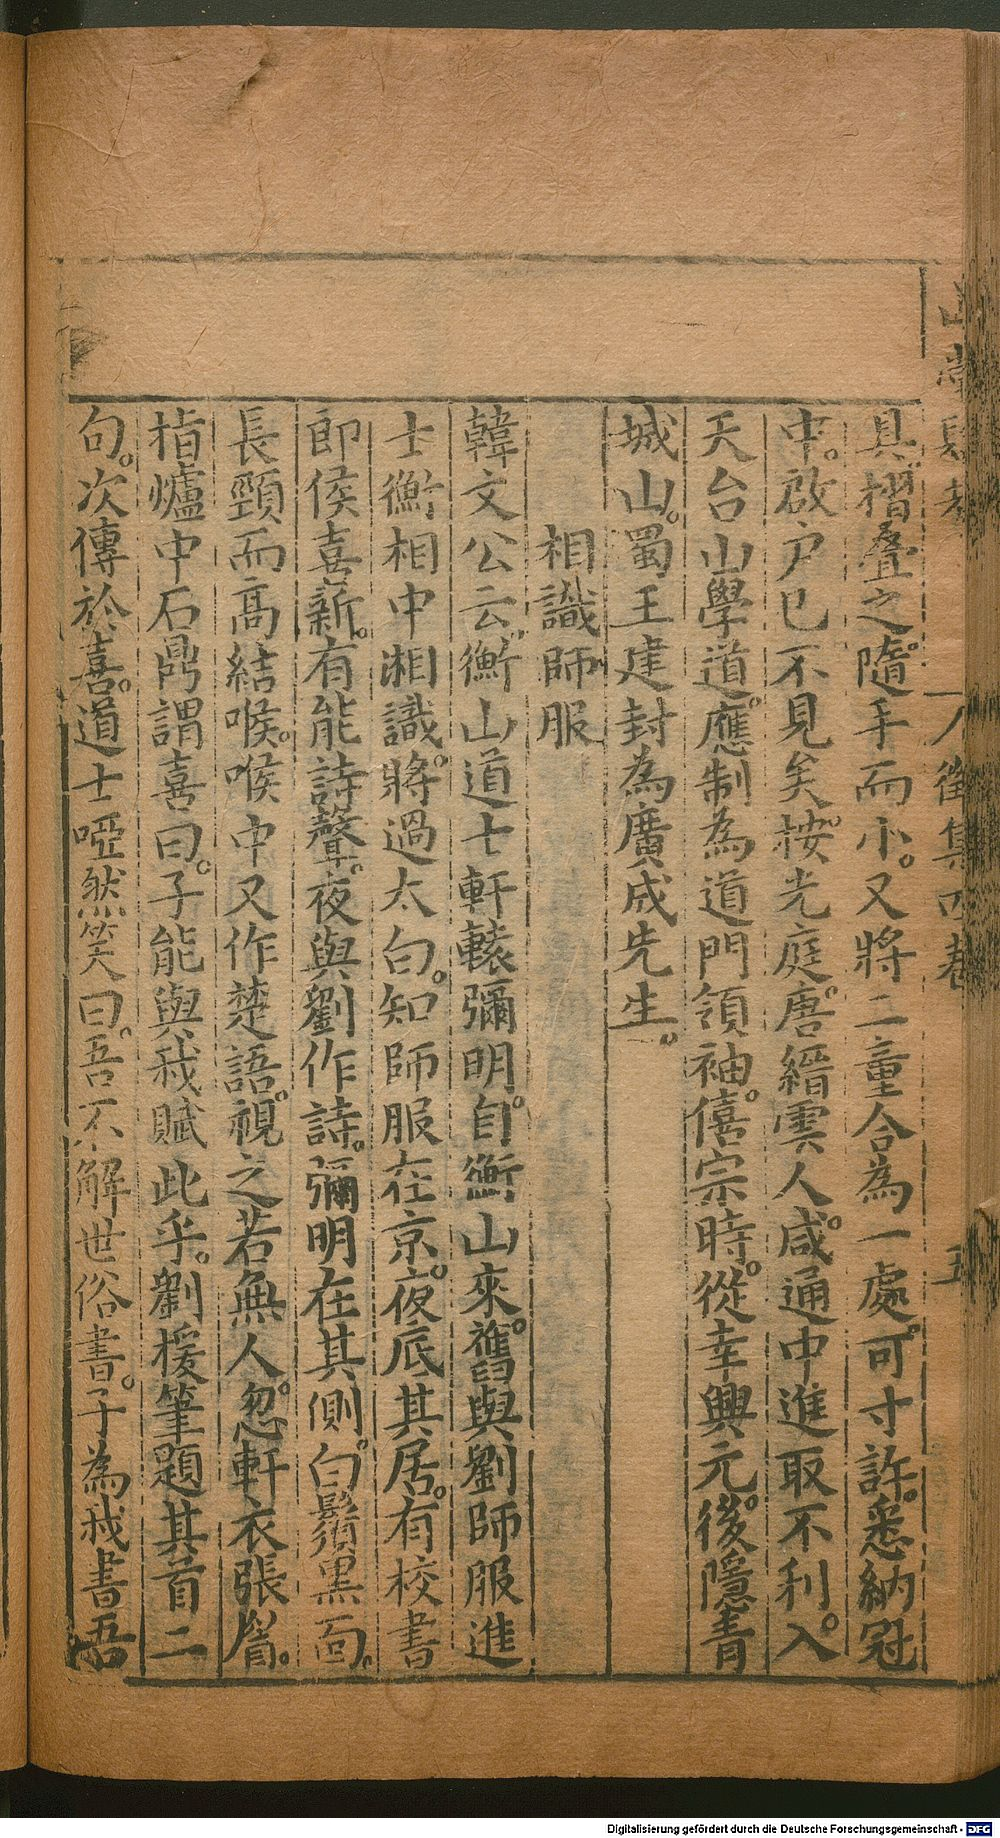 八徵集四卷 五
具摺叠之隨手而小。又將二童合為一處。可寸許。悉納冠
中。啟户已不見矣。按光庭唐縉雲人。咸通中進取不利。入
天台山學道。應制為道門領袖。僖宗時。從幸興元。後隱青
城山。蜀王建封為廣成先生。
相識師服
韓文公云衡山道士軒轅彌明。自衡山來。舊與劉師服進
士衡相中湘識。將過太白。知師服在京。夜底其居。有校書
郎侯喜新。有能詩聲。夜與劉作詩。彌明在其側。白鬚黑面。
長頸而高結喉。喉中又作楚語。視之若無人。忽軒衣張眉。
指爐中石鼎謂喜曰。子能與我賦此乎。劉援筆題其首二
句。次傳於喜。道士啞然笑曰。吾不解世俗書。子為我書吾
Digitalisierung gefördert durch die Deutsche Forschungsgemeinschaft - DFG